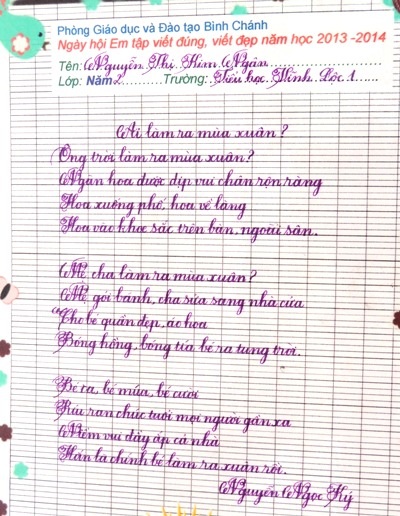 Phòng Giáo dục và Đào tạo Bình Chánh
Ngày hội Em tập viết đúng, viết đẹp năm học 2013 -2014
Tên: Nguyễn Thị Kim Ngân
Lớp: Năm 2 Trường: Tiểu học Vĩnh Lộc 1
Ai làm ra mùa xuân?
Ông trời làm ra mùa xuân?
Ngàn hoa được dịp vui chân rộn ràng
Hoa xuống phố, hoa về làng
Hoa vào khoe sắc trên bàn, ngoài sân.
Mẹ, cha làm ra mùa xuân?
Mẹ gói bánh, cha sửa sang nhà cửa
Cho bé quần đẹp, áo hoa
Bóng hồng, bóng tía bé ra tung trời.
Bé ca, bé múa, bé cười
Ríu ran chúc tuổi mọi người gần xa
Niềm vui đầy ắp cả nhà
Hẳn là chính bé làm ra xuân rồi.
Nguyễn Ngọc Ký